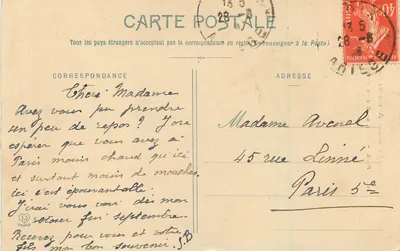 CARTE POSTALE
Tous les pays étrangers n'acceptent pas la correspondance au recto (se renseigner à la Poste)
CORRESPONDANCE
ADRESSE
Chère Madame
Avez vous pu prendre
un peu de repos? J'ose
espérer que vous avez à
Paris moins chaud qu'ici
et surtout moins de mouches
Ici c'est épouvantable.
J'irai vous voir dès mon
retour fin septembre.
Recevez pour vous et votre
fils mon bon souvenir. J.B
Madame Avenel
45 rue Linné
Paris 5e